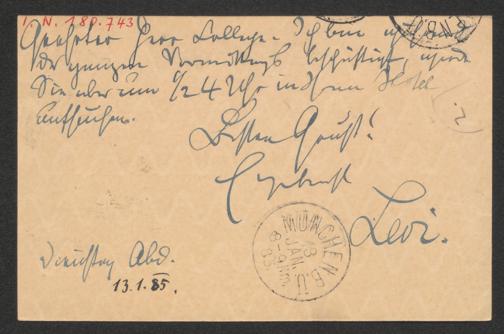 I. N. 180.743
Geehrter Herr College. Ich bin
den ganzen Vormittag beschäftigt, werde
Sie aber um 1/2 4 Uhr in Ihrem Hotel
aufsuchen.
(2)
Besten Gruß!
Ergebenst
Levi.
MÜNCHEN B.O.
13
JAN.
8-9 Nm
85
Dienstag Abd.
13.1.85.